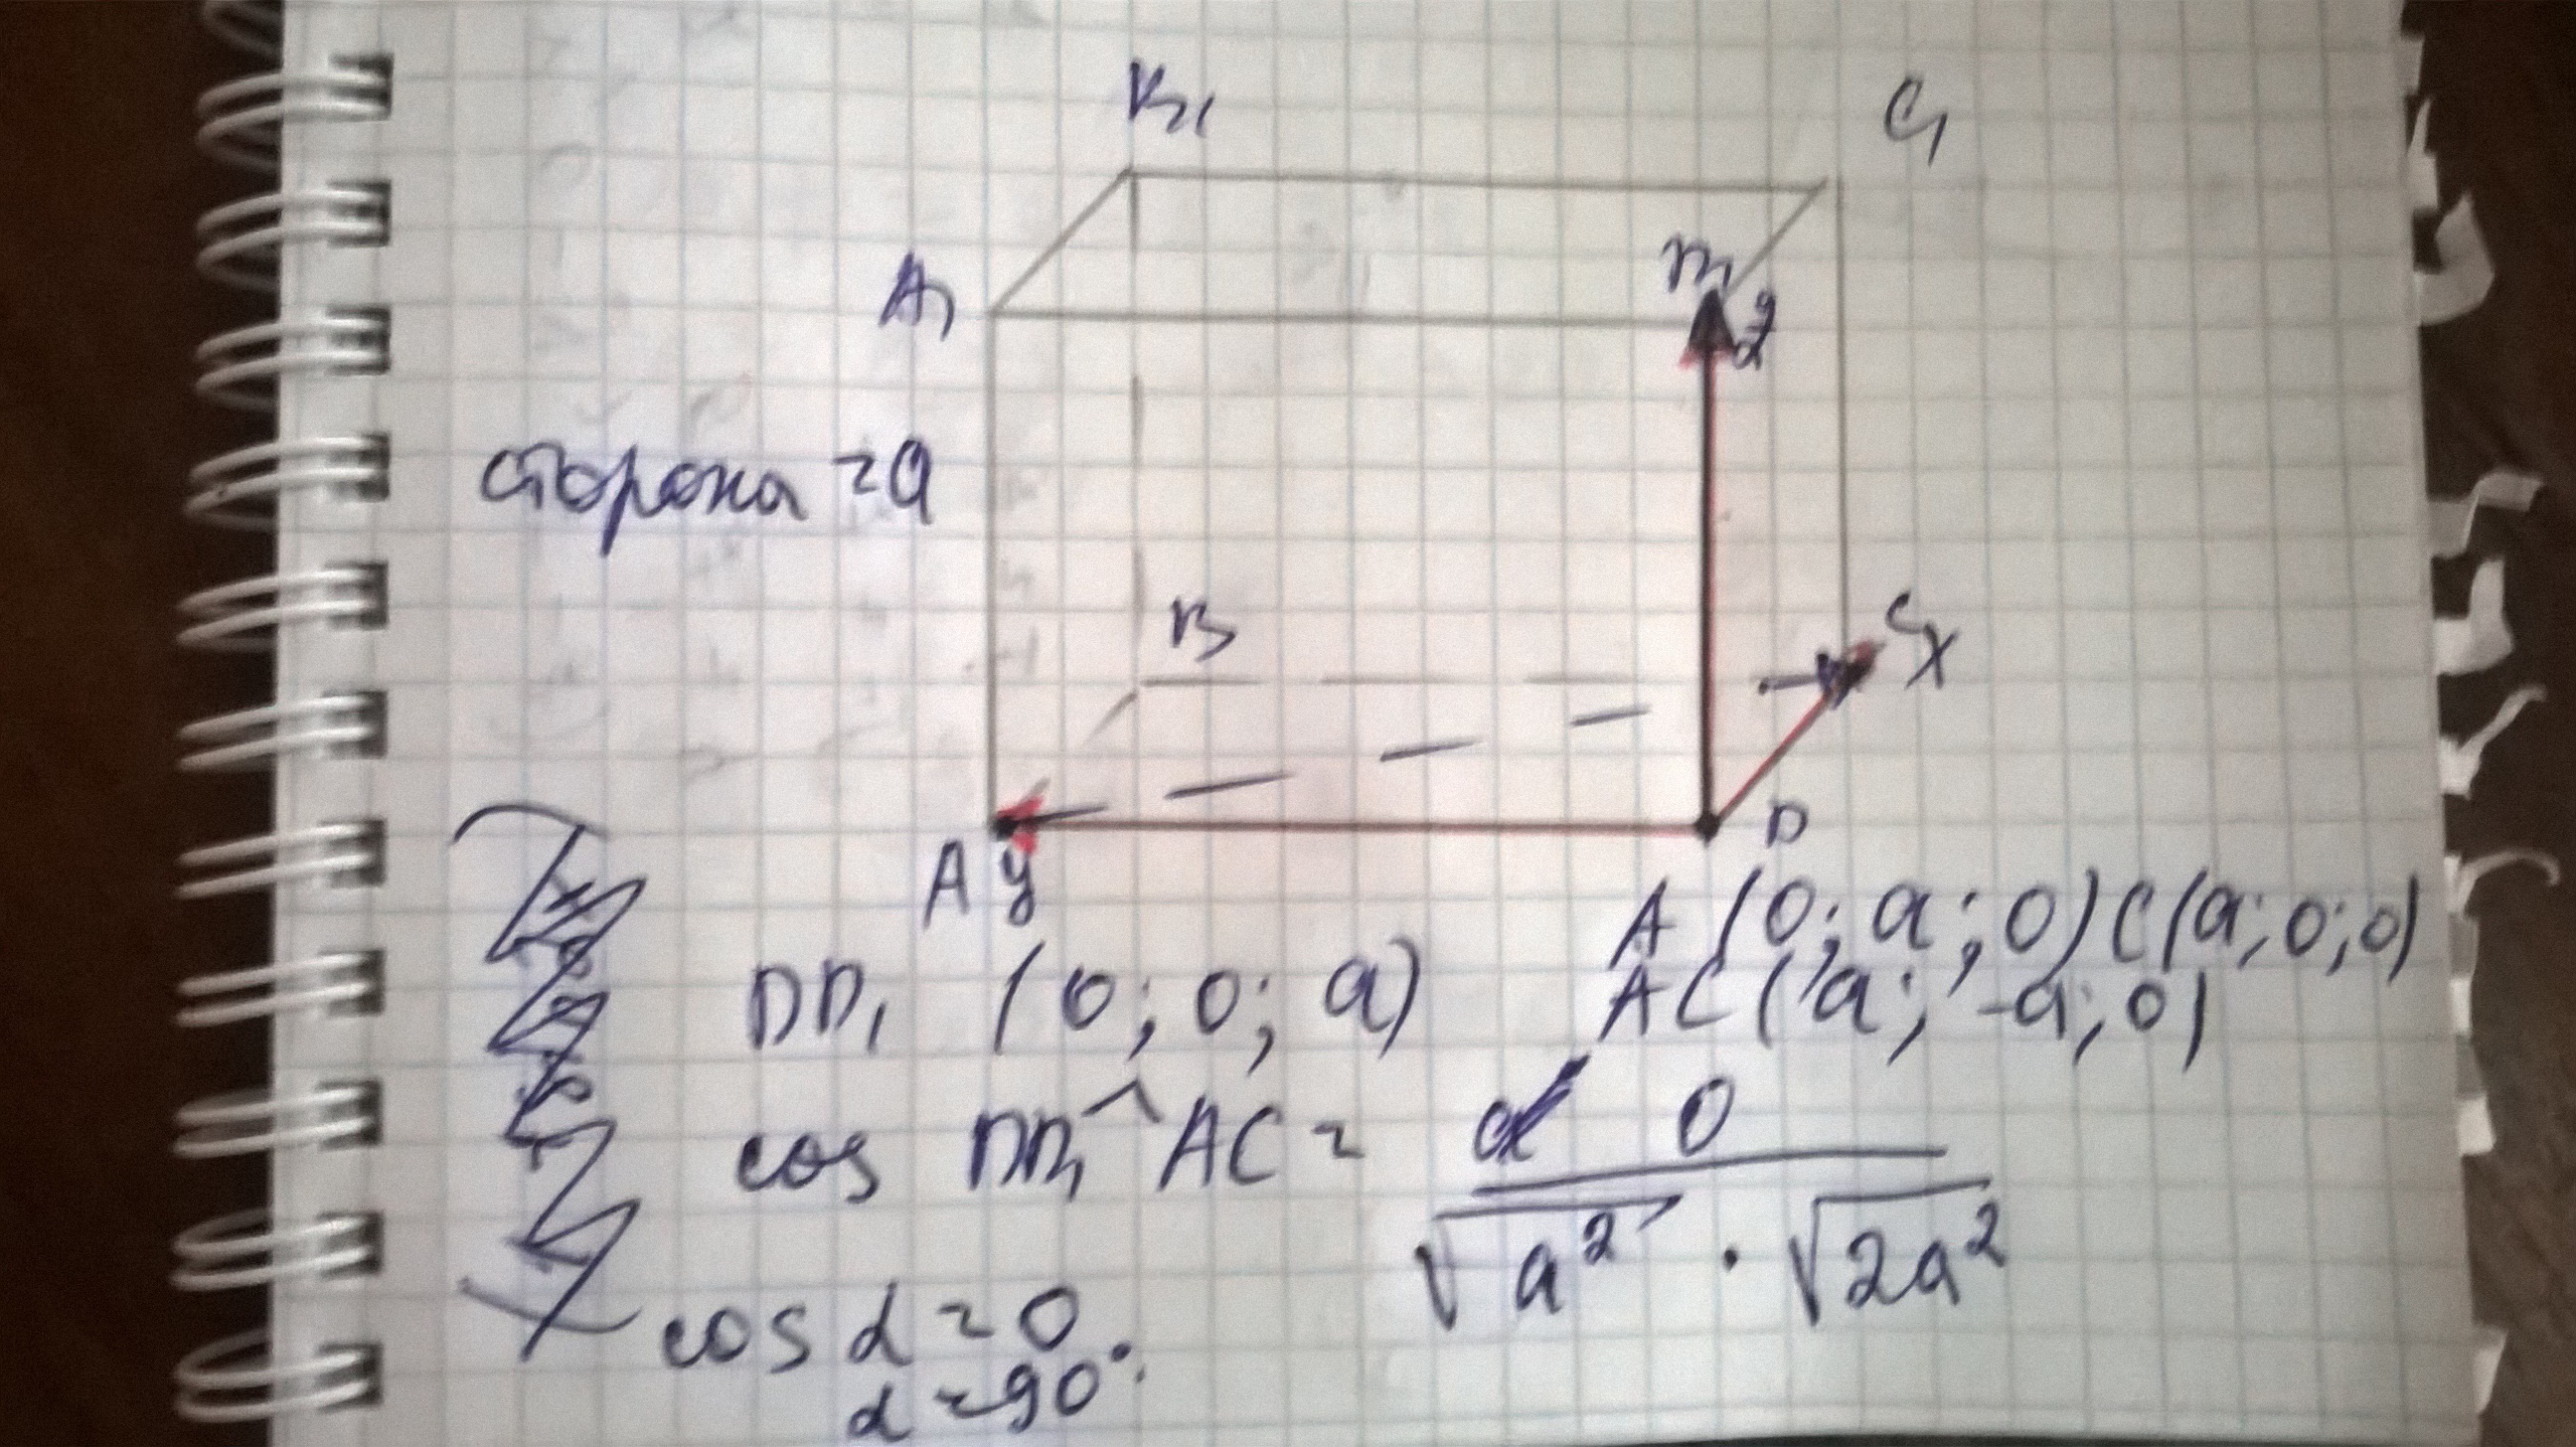 B₁ C₁
A₁ D₁ z
сторона = a
B C x
A y D
A (0; a; 0) C(a; 0; 0)
DD₁ (0; 0; a) AC(a; -a; 0)
cos DD₁^AC = 0 / √a² · √2a²
cos α = 0
α = 90°